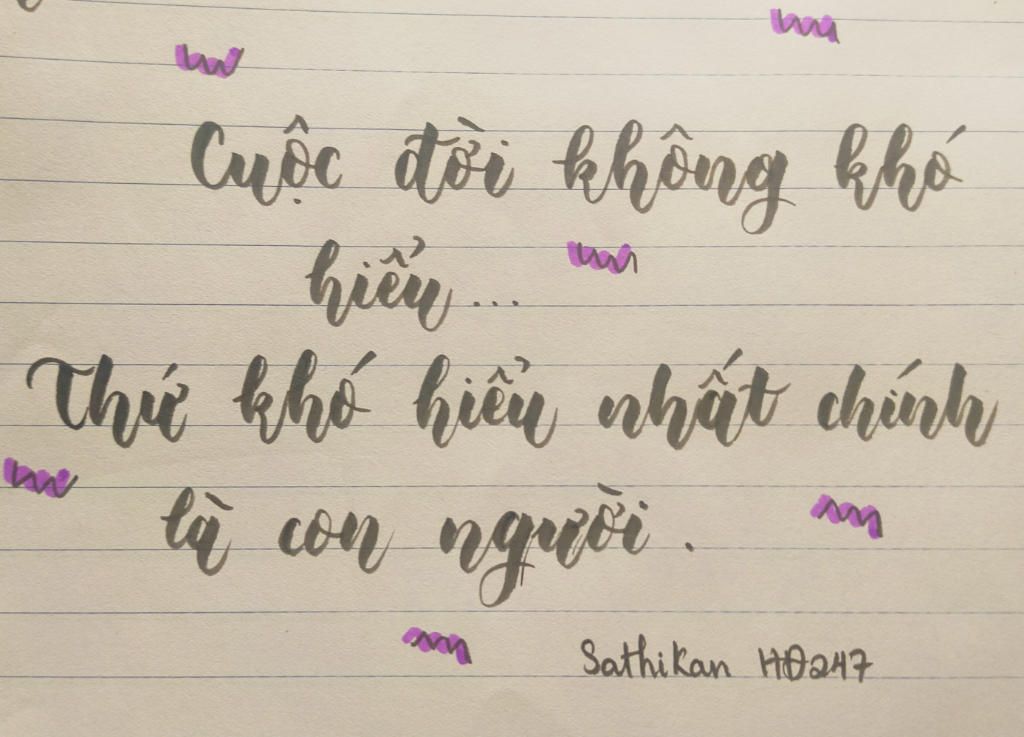 Cuộc đời không khó
hiểu...
Thứ khó hiểu nhất chính
là con người.
Sathikan HĐ247